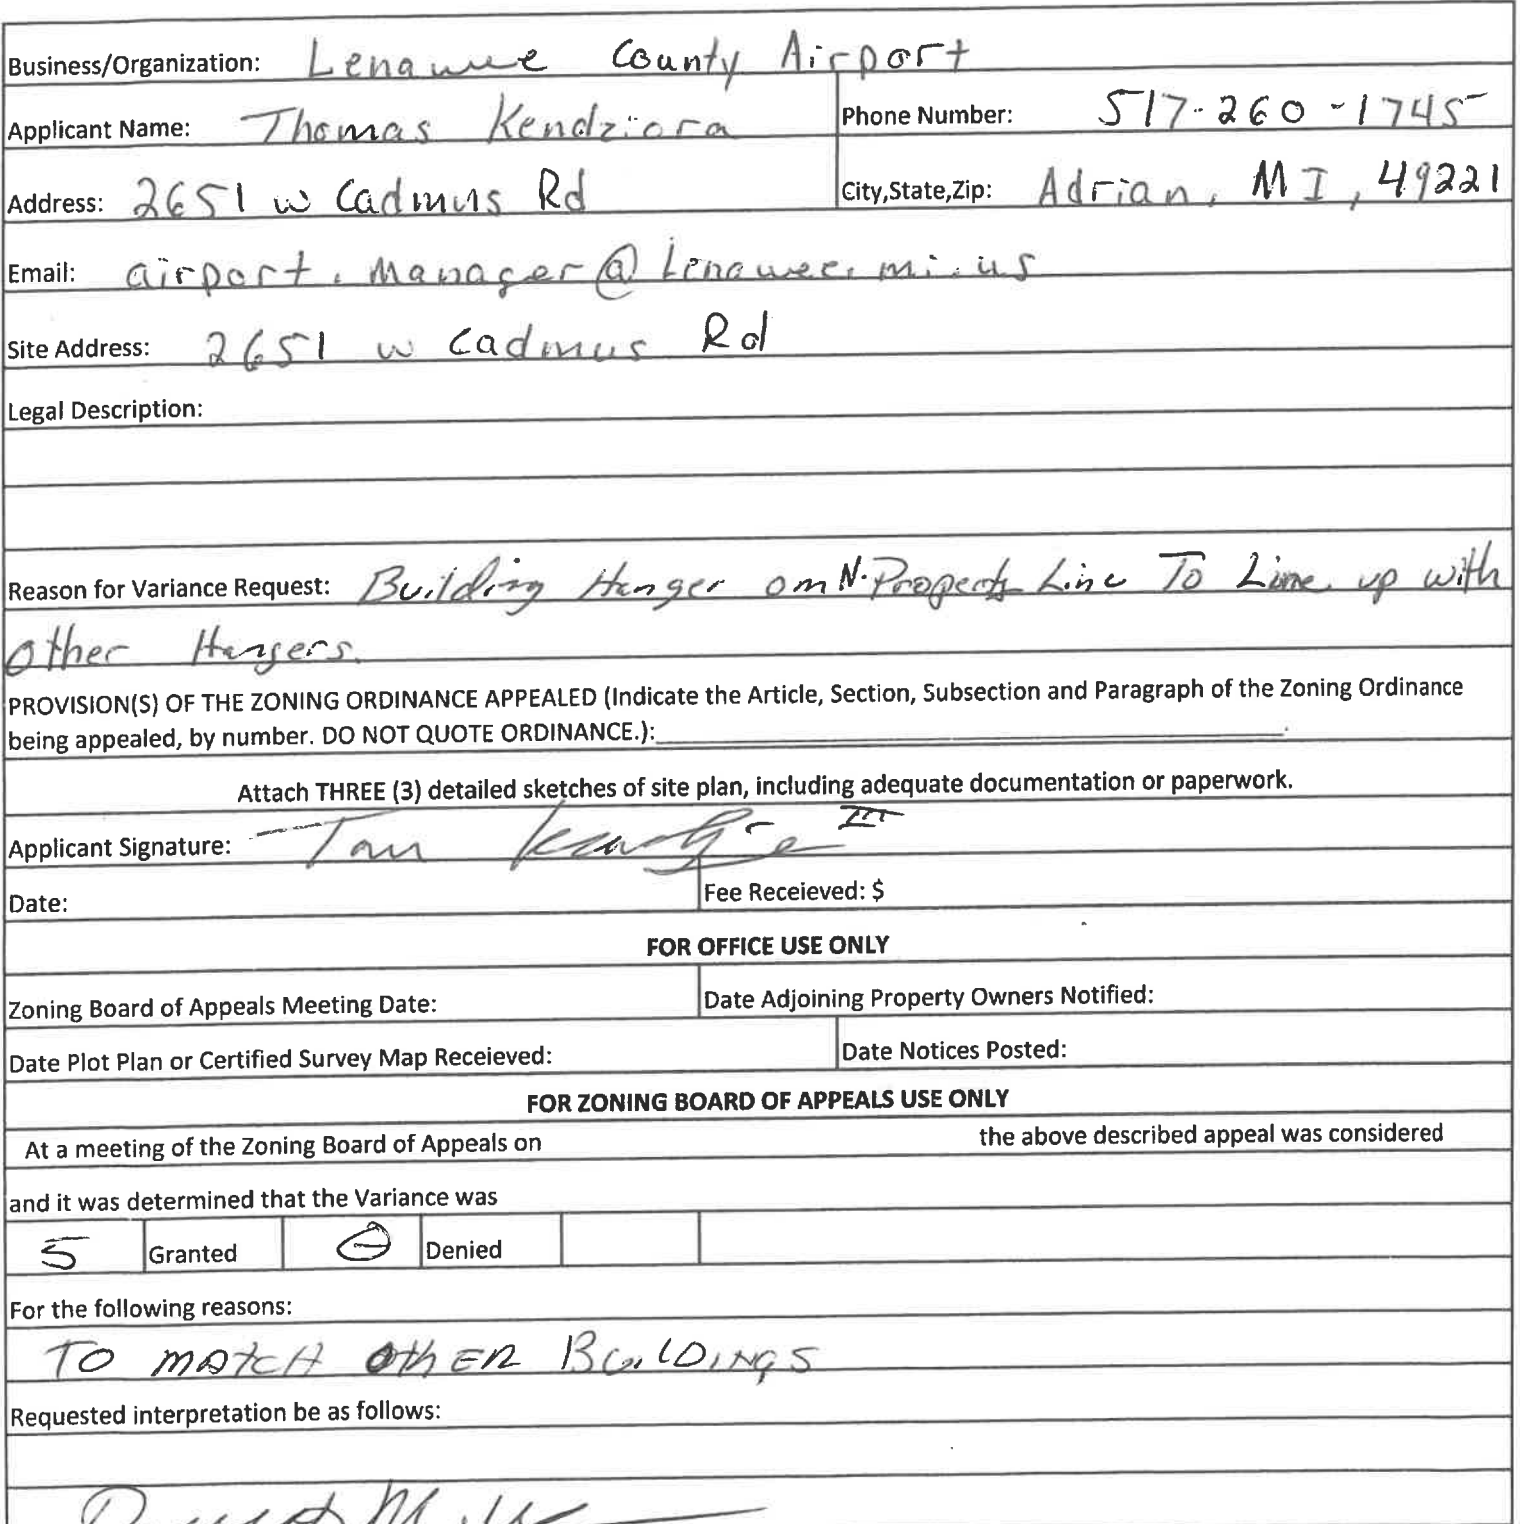 Business/Organization: Lenawee County Airport
Applicant Name: Thomas Kendziora Phone Number: 517-260-1745
Address: 2651 w Cadmus Rd City,State,Zip: Adrian, MI, 49221
Email: airport.manager@lenawee.mi.us
Site Address: 2651 w Cadmus Rd
Legal Description:
Reason for Variance Request: Building Hanger on N. Property Line To Line up with
other Hangers.
PROVISION(S) OF THE ZONING ORDINANCE APPEALED (Indicate the Article, Section, Subsection and Paragraph of the Zoning Ordinance
being appealed, by number. DO NOT QUOTE ORDINANCE.):
Attach THREE (3) detailed sketches of site plan, including adequate documentation or paperwork.
Applicant Signature: Tom III
Date: Fee Receieved: $
FOR OFFICE USE ONLY
Zoning Board of Appeals Meeting Date: Date Adjoining Property Owners Notified:
Date Plot Plan or Certified Survey Map Receieved: Date Notices Posted:
FOR ZONING BOARD OF APPEALS USE ONLY
At a meeting of the Zoning Board of Appeals on the above described appeal was considered
and it was determined that the Variance was
5 Granted 0 Denied
For the following reasons:
TO MATCH OthER BUILDINGS
Requested interpretation be as follows: